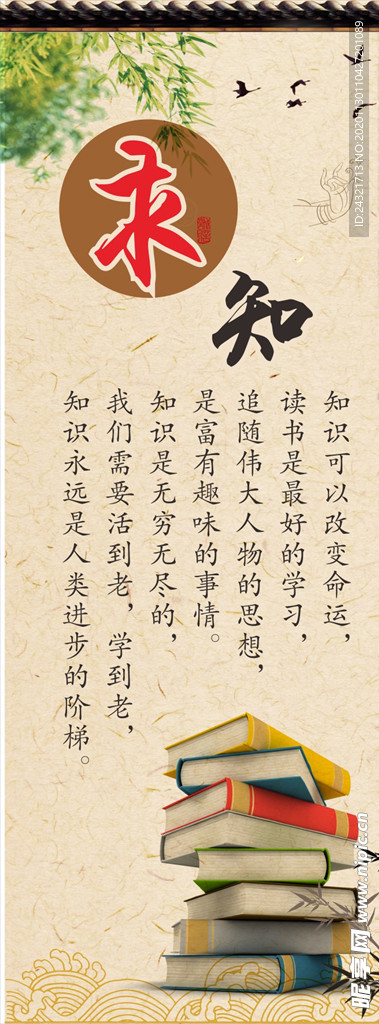 求
知
知识可以改变命运，
读书是最好的学习，
追随伟大人物的思想，
是富有趣味的事情。
知识是无穷无尽的，
我们需要活到老，学到老，
知识永远是人类进步的阶梯。
昵享网 www.nipic.cn